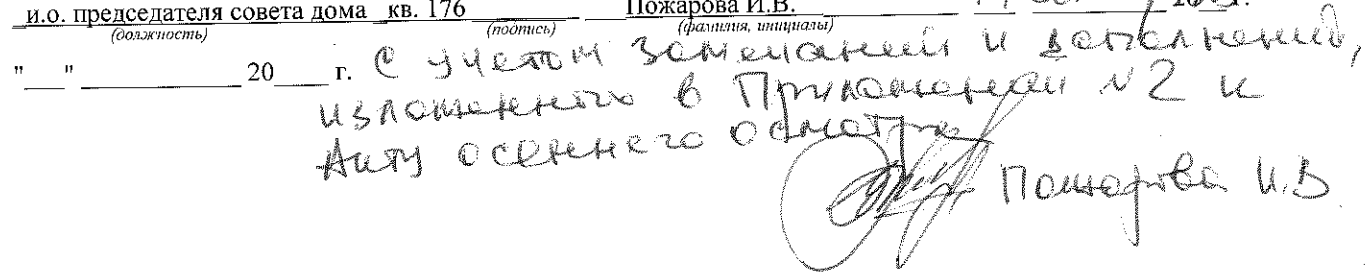 и.о. председателя совета дома кв. 176 Пожарова И.В. г.
(должность) (подпись) (фамилия, инициалы)
" " 20 г. С учетом замечаний и дополнений,
изложенных в Приложении №2 к
Акту осеннего осмотра
Пожарова И.В